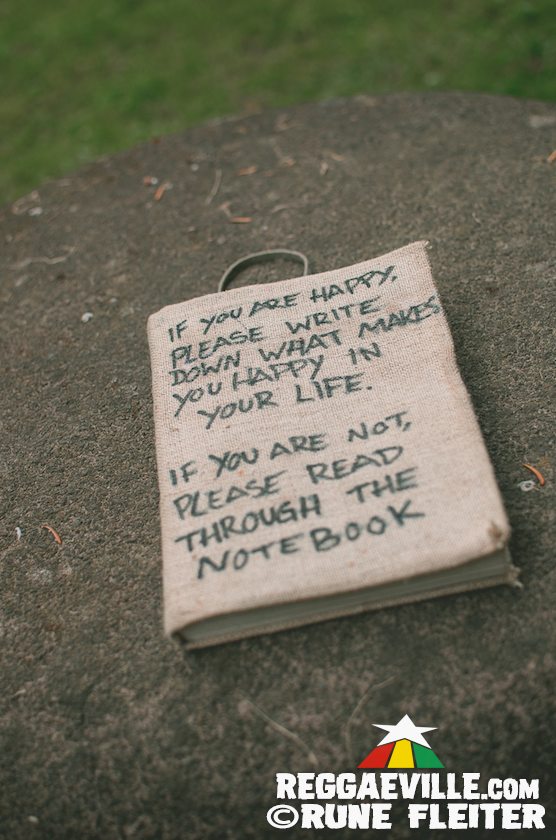 IF YOU ARE HAPPY,
PLEASE WRITE
DOWN WHAT MAKES
YOU HAPPY IN
YOUR LIFE.
IF YOU ARE NOT,
PLEASE READ
THROUGH THE
NOTEBOOK
REGGAEVILLE.COM
©RUNE FLEITER